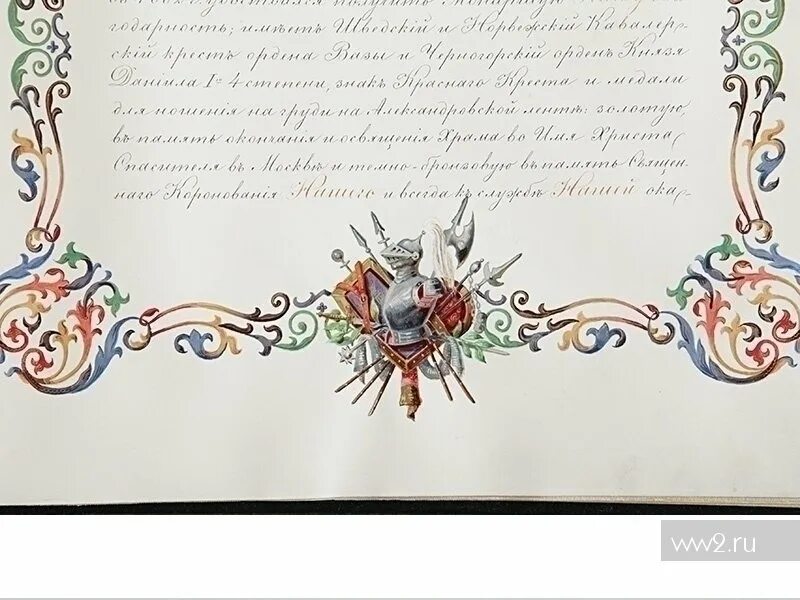 удостоился получить Монаршую
годарность; имѣетъ Шведскій и Норвежскій Кавалер-
скій крестъ ордена Вазы и Черногорскій орденъ Князя
Даніила Iго 4 степени, знакъ Краснаго Креста и медали
для ношенія на груди на Александровской лентѣ: золотую,
въ память окончанія и освященія Храма во Имя Христа
Спасителя въ Москвѣ и темно-бронзовую въ память Священ-
наго Коронованія Нашего и всегда къ службѣ Нашей ока-
ww2.ru